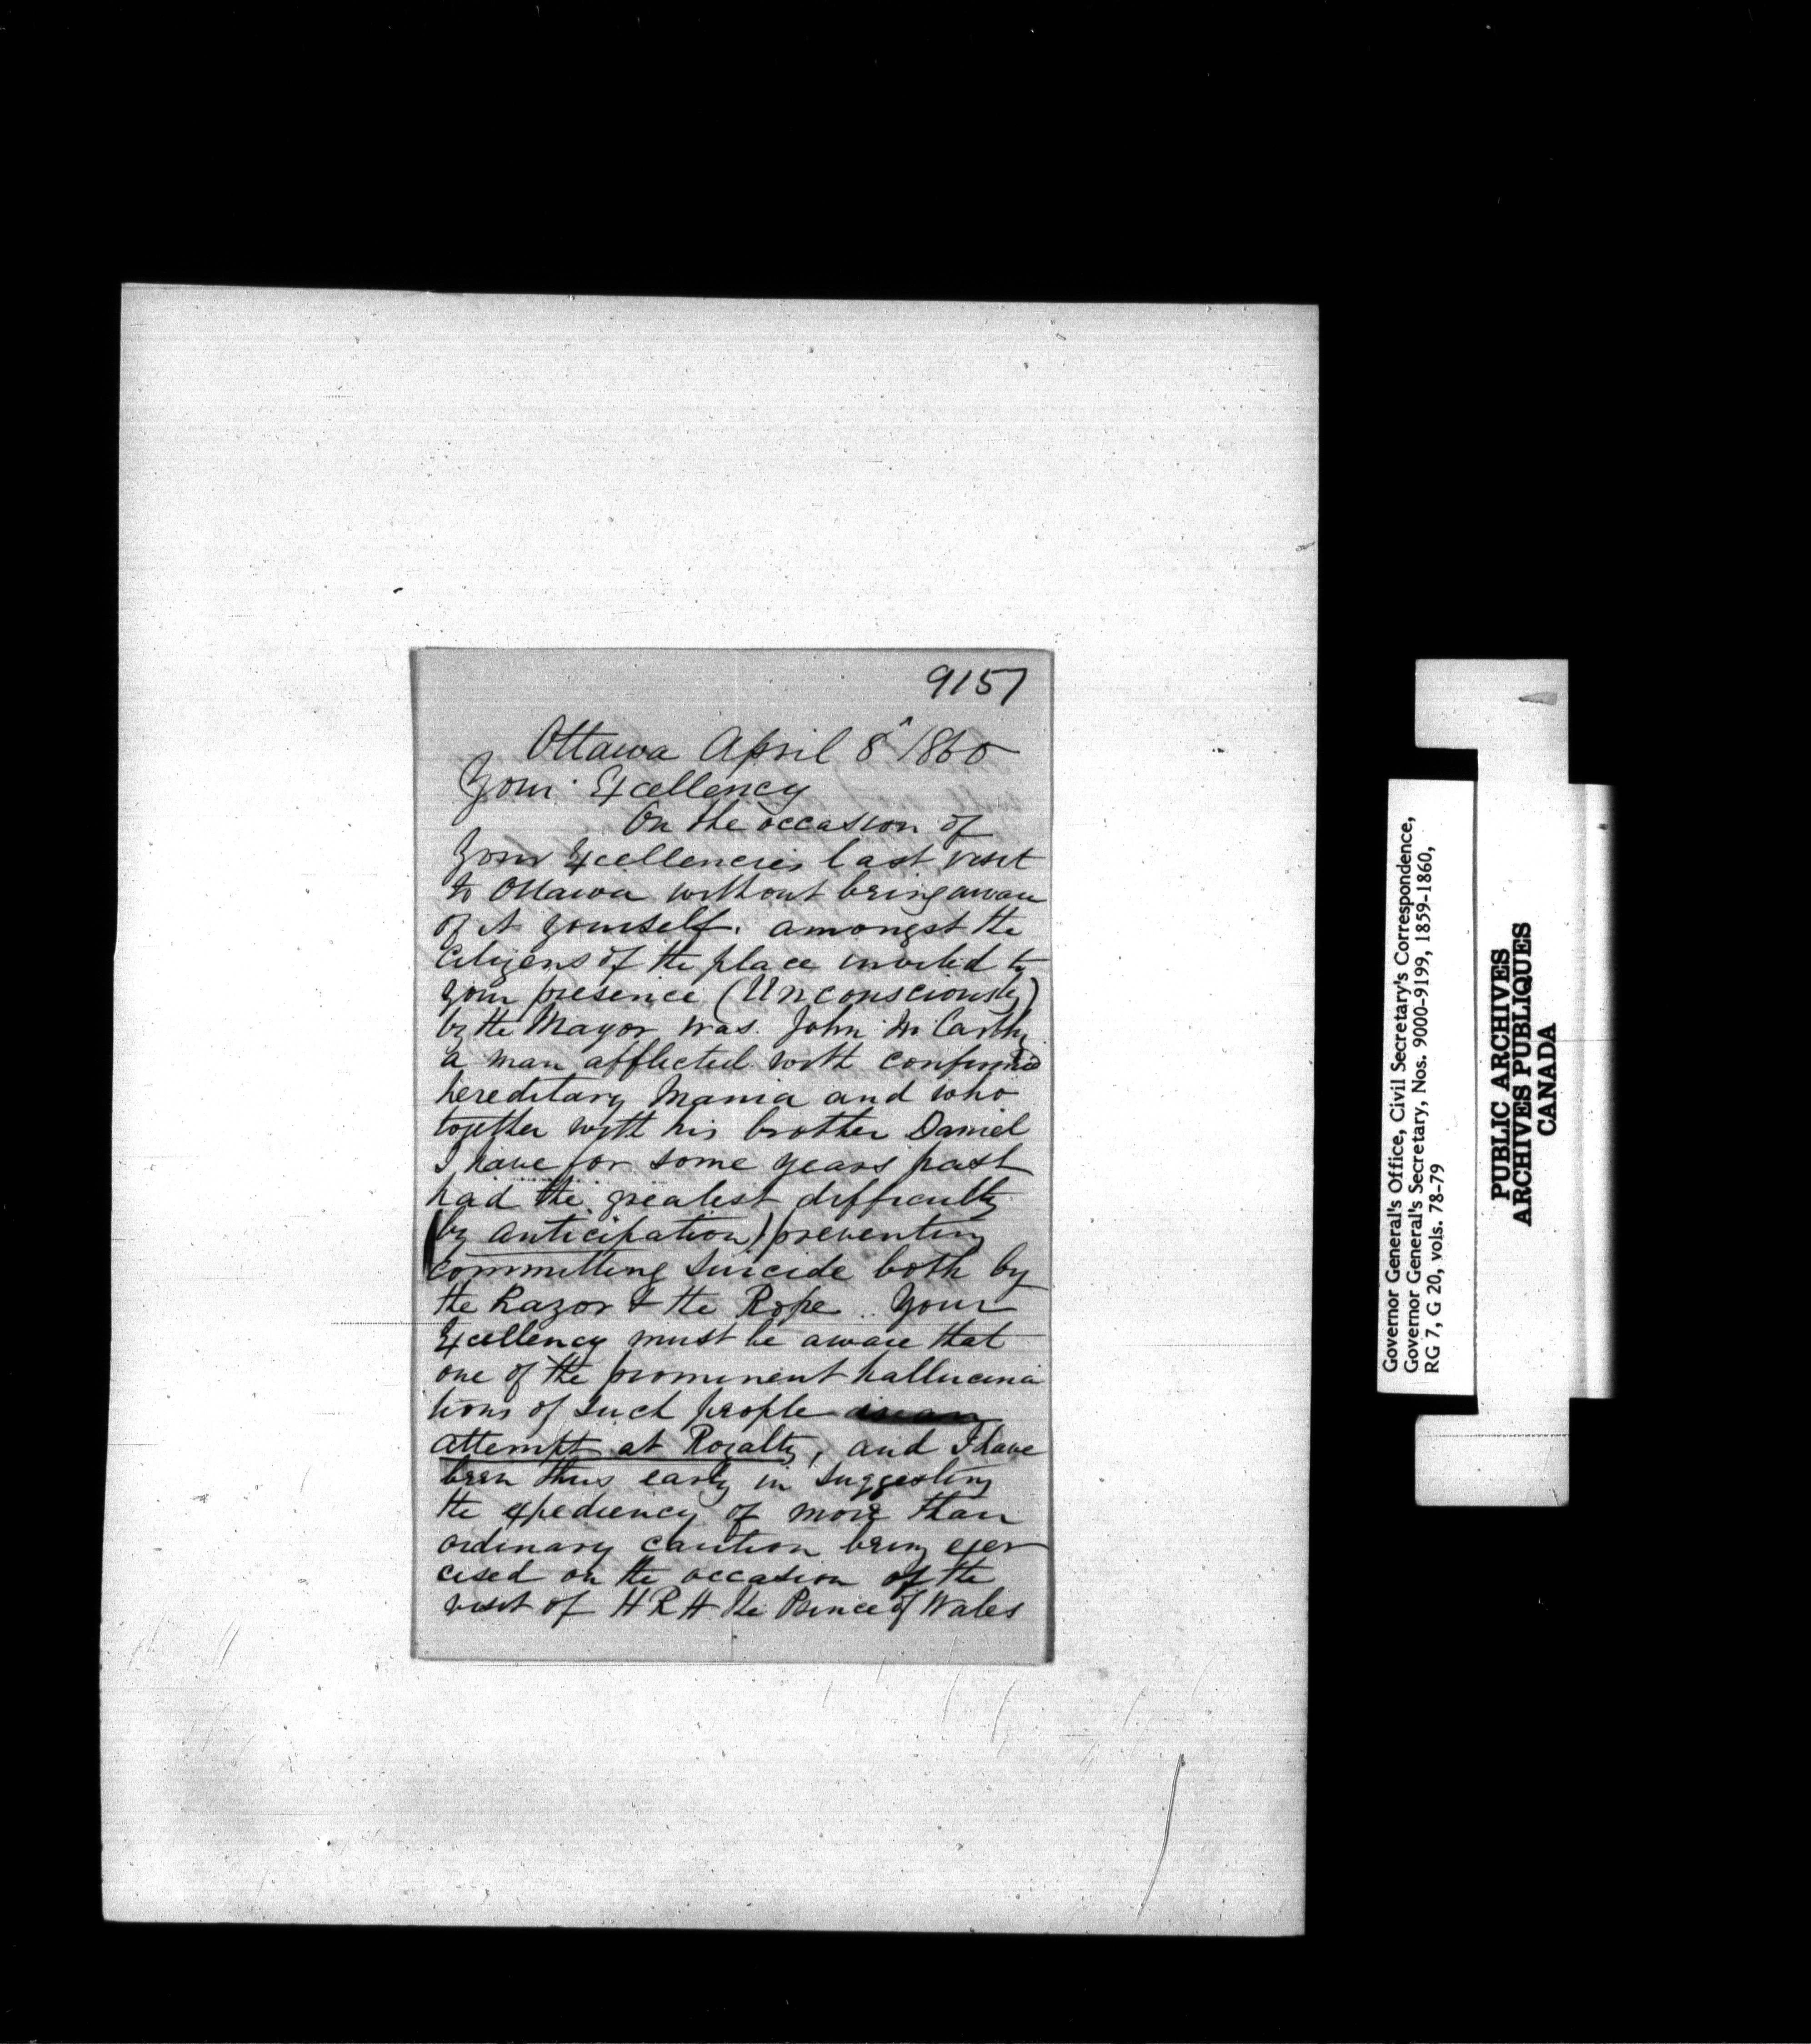 9157
Ottawa April 8 1860
Your Excellency
On the occasion of
Your Excellencies last visit
to Ottawa without being aware
of it yourself. amongst the
Citizens of the place invited to
your presence (Unconsciously)
by the Mayor was. John McCarthy
a man afflicted with confirmed
hereditary Mania and who
together with his brother Daniel
I have for some years past
had the greatest difficulty
(by anticipation) preventing
committing Suicide both by
the Razor & the Rope. Your
Excellency must be aware that
one of the prominent hallucina
tions of such people
attempt at Royalty, and I have
been thus early in suggesting
the expediency of more than
ordinary caution being exer
cised on the occasion of the
visit of HRH the Prince of Wales
Governor General's Office, Civil Secretary's Correspondence,
Governor General's Secretary, Nos. 9000-9199, 1859-1860,
RG 7, G 20, vols. 78-79
PUBLIC ARCHIVES
ARCHIVES PUBLIQUES
CANADA